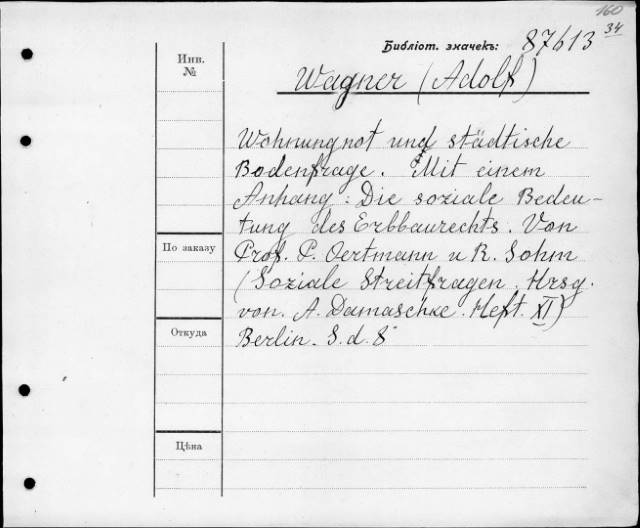 160
34
Библіот. значекъ: 87613
Инв.
№
Wagner (Adolf)
Wohnungnot und städtische
Bodenfrage. Mit einem
Anhang: Die soziale Bedeu-
tung des Erbbaurechts. Von
По заказу
Prof. P. Oertmann u R. Sohm
(Soziale Streitfragen. Hrsg.
von. A. Damaschke. Heft. XI)
Откуда
Berlin. S. d. 8°
Цѣна